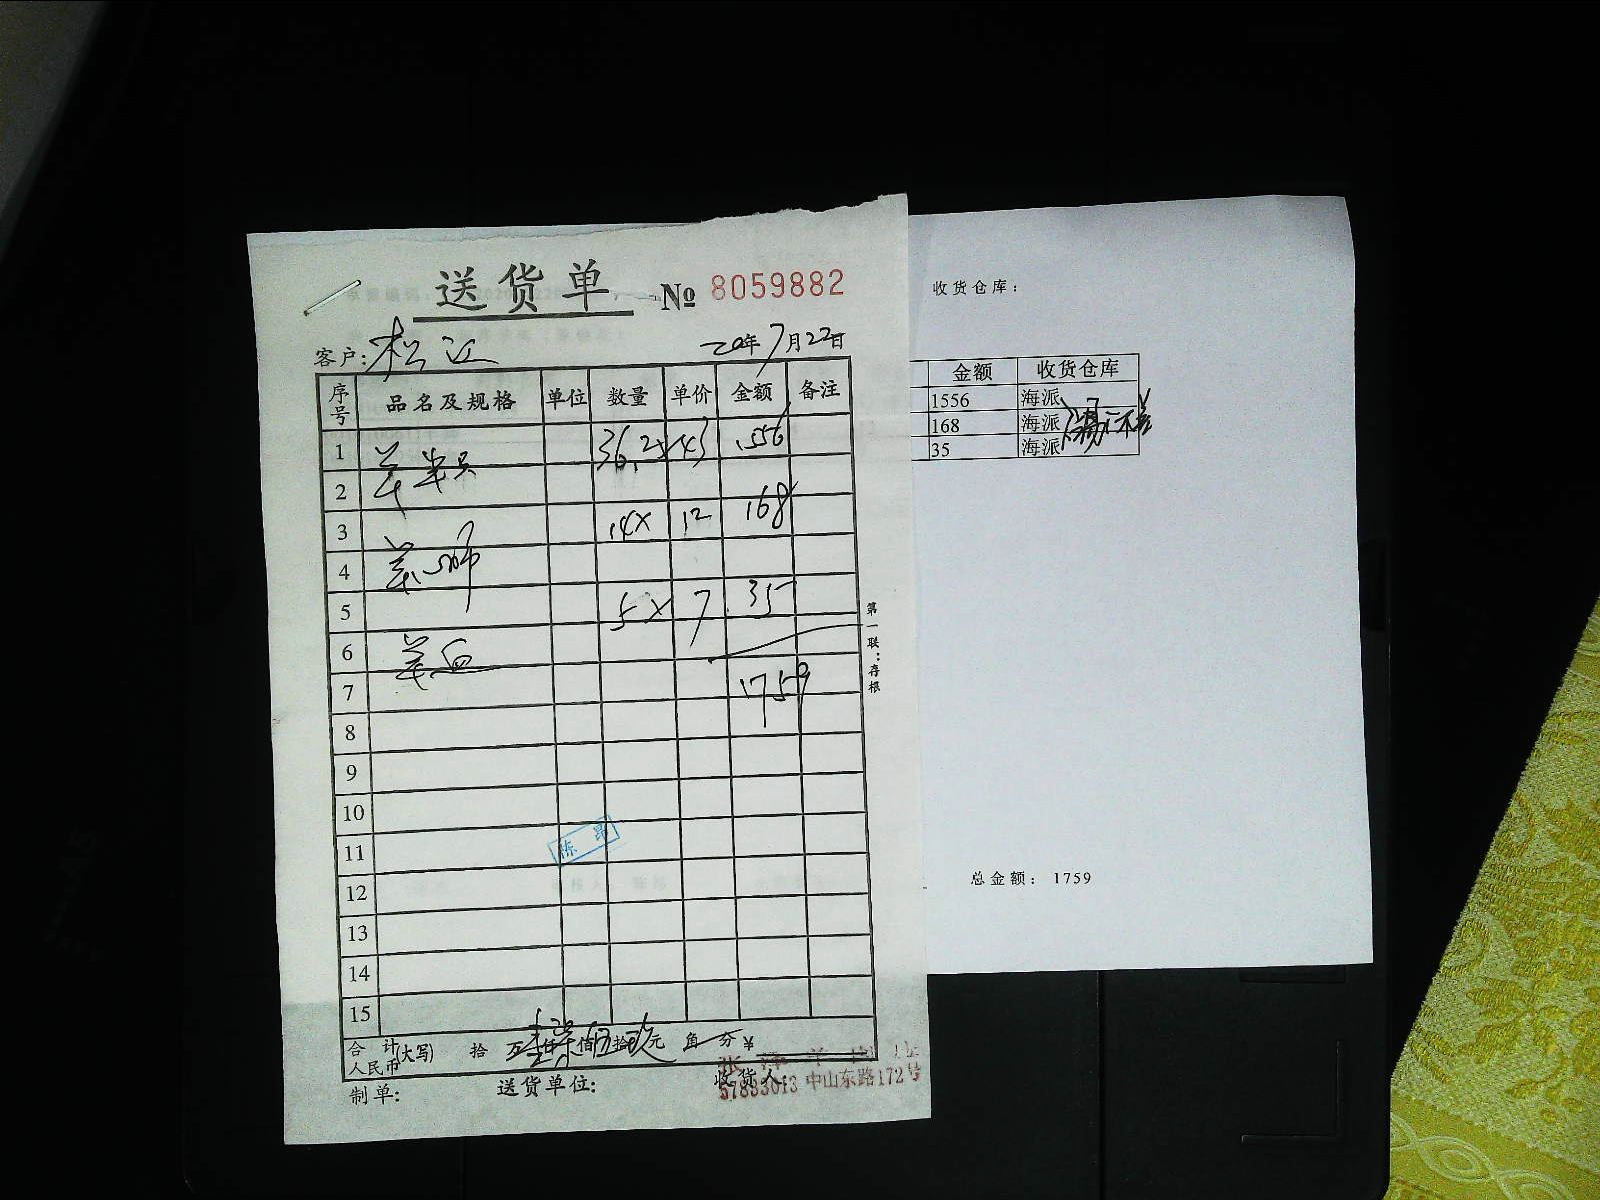 送货单 № 8059882
客户: 松江 20年7月22日
序号 品名及规格 单位 数量 单价 金额 备注
1 羊半只 36.2× 43 1556
2
3 14× 12 168
4 羊心肺
5 5× 7 35
6 羊血
7 1759
8
9
10
11
12
13
14
15
合计人民币(大写) 拾 万 壹仟柒佰伍拾玖元 角 分
制单: 送货单位: 收货人:
57833013 中山东路172号
第一联:存根
陈昂
收货仓库:
金额 收货仓库
1556 海派
168 海派
35 海派
总金额: 1759